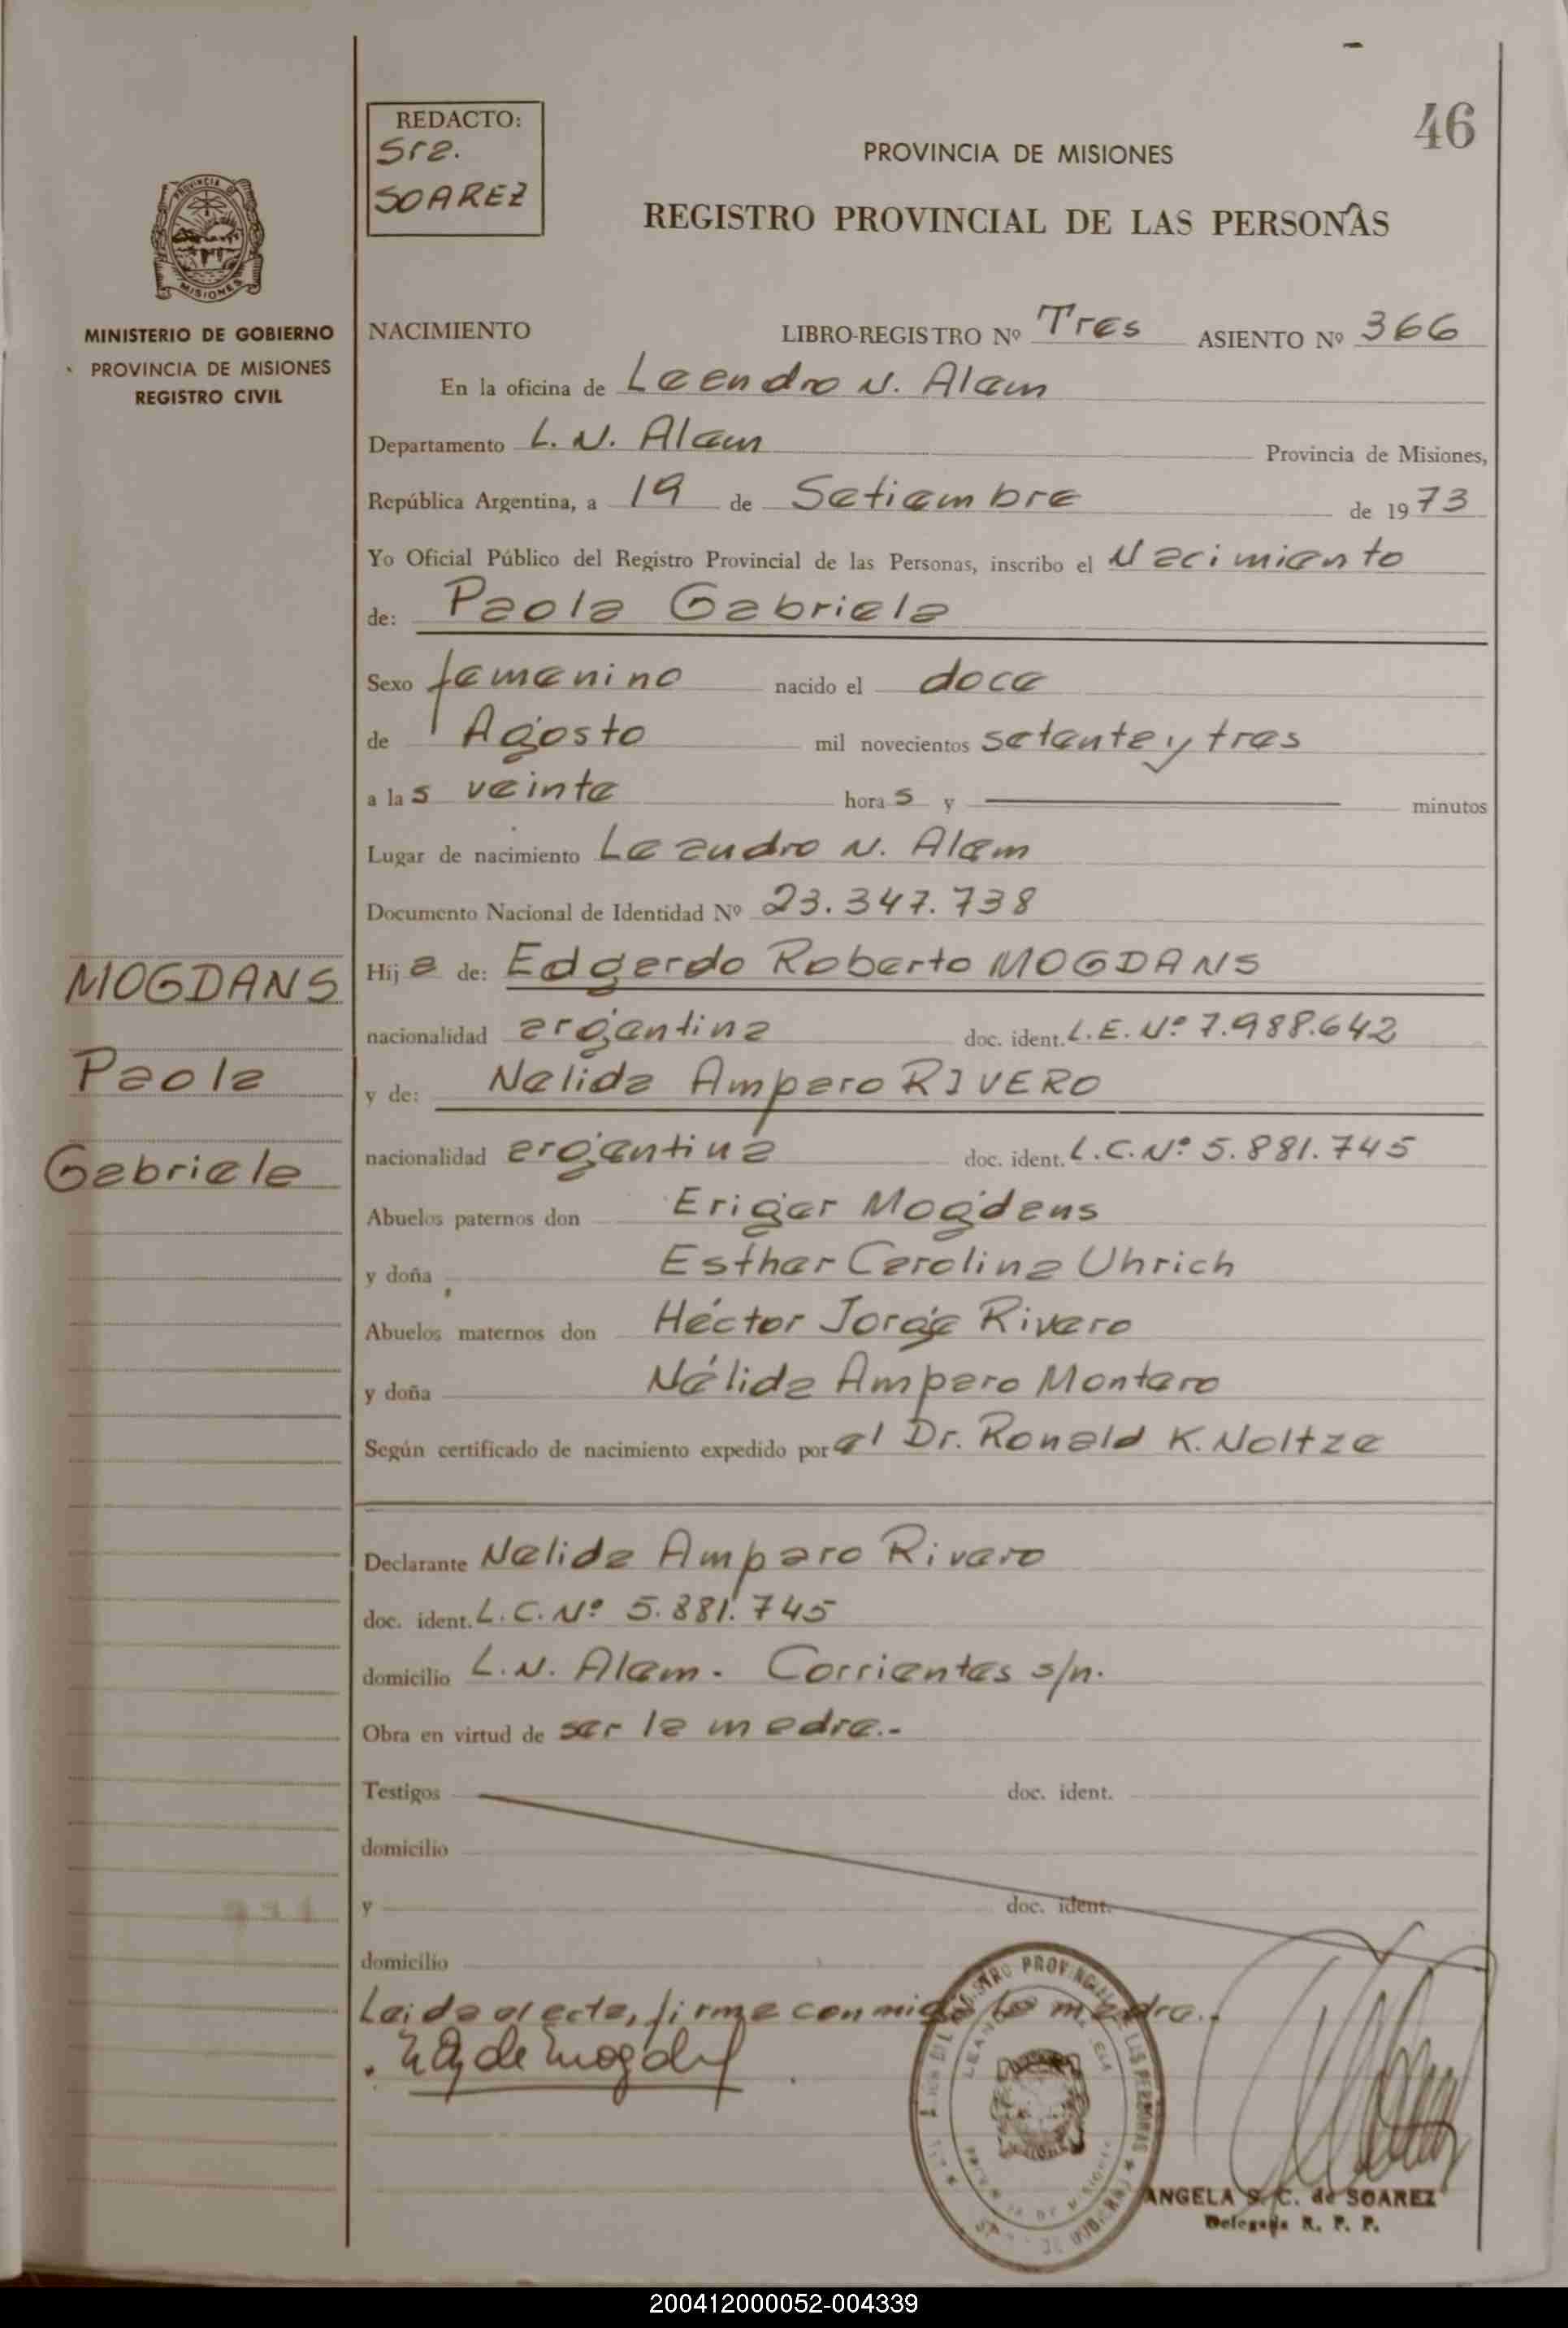 46
REDACTO:
Sra.
SOAREZ
PROVINCIA DE MISIONES
REGISTRO PROVINCIAL DE LAS PERSONAS
PROVINCIA DE
MISIONES
MINISTERIO DE GOBIERNO
PROVINCIA DE MISIONES
REGISTRO CIVIL
NACIMIENTO LIBRO-REGISTRO Nº Tres ASIENTO Nº 366
En la oficina de Leandro N. Alem
Departamento L. N. Alem Provincia de Misiones,
República Argentina, a 19 de Setiembre de 1973
Yo Oficial Público del Registro Provincial de las Personas, inscribo el Nacimiento
de: Paola Gabriela
Sexo femenino nacido el doce
de Agosto mil novecientos setenta y tres
a las veinte horas y minutos
Lugar de nacimiento Leandro N. Alem
Documento Nacional de Identidad Nº 23.347.738
MOGDANS
Paola
Gabriela
Hija de: Edgardo Roberto MOGDANS
nacionalidad argentina doc. ident. L.E. Nº 7.988.642
y de: Nelida Amparo RIVERO
nacionalidad argentina doc. ident. L.C. Nº 5.881.745
Abuelos paternos don Erigar Mogdans
y doña Esther Carolina Uhrich
Abuelos maternos don Héctor Jorge Rivero
y doña Nélida Amparo Montero
Según certificado de nacimiento expedido por el Dr. Ronald K. Noltze
Declarante Nelida Amparo Rivero
doc. ident. L.C. Nº 5.881.745
domicilio L.N. Alem. Corrientes s/n.
Obra en virtud de ser la madre.-
Testigos doc. ident.
domicilio
y doc. ident.
domicilio
Leida el acta, firma conmigo la madre.-
de Mogd
ANGELA S. C. de SOAREZ
Delegada R. P. P.
200412000052-004339